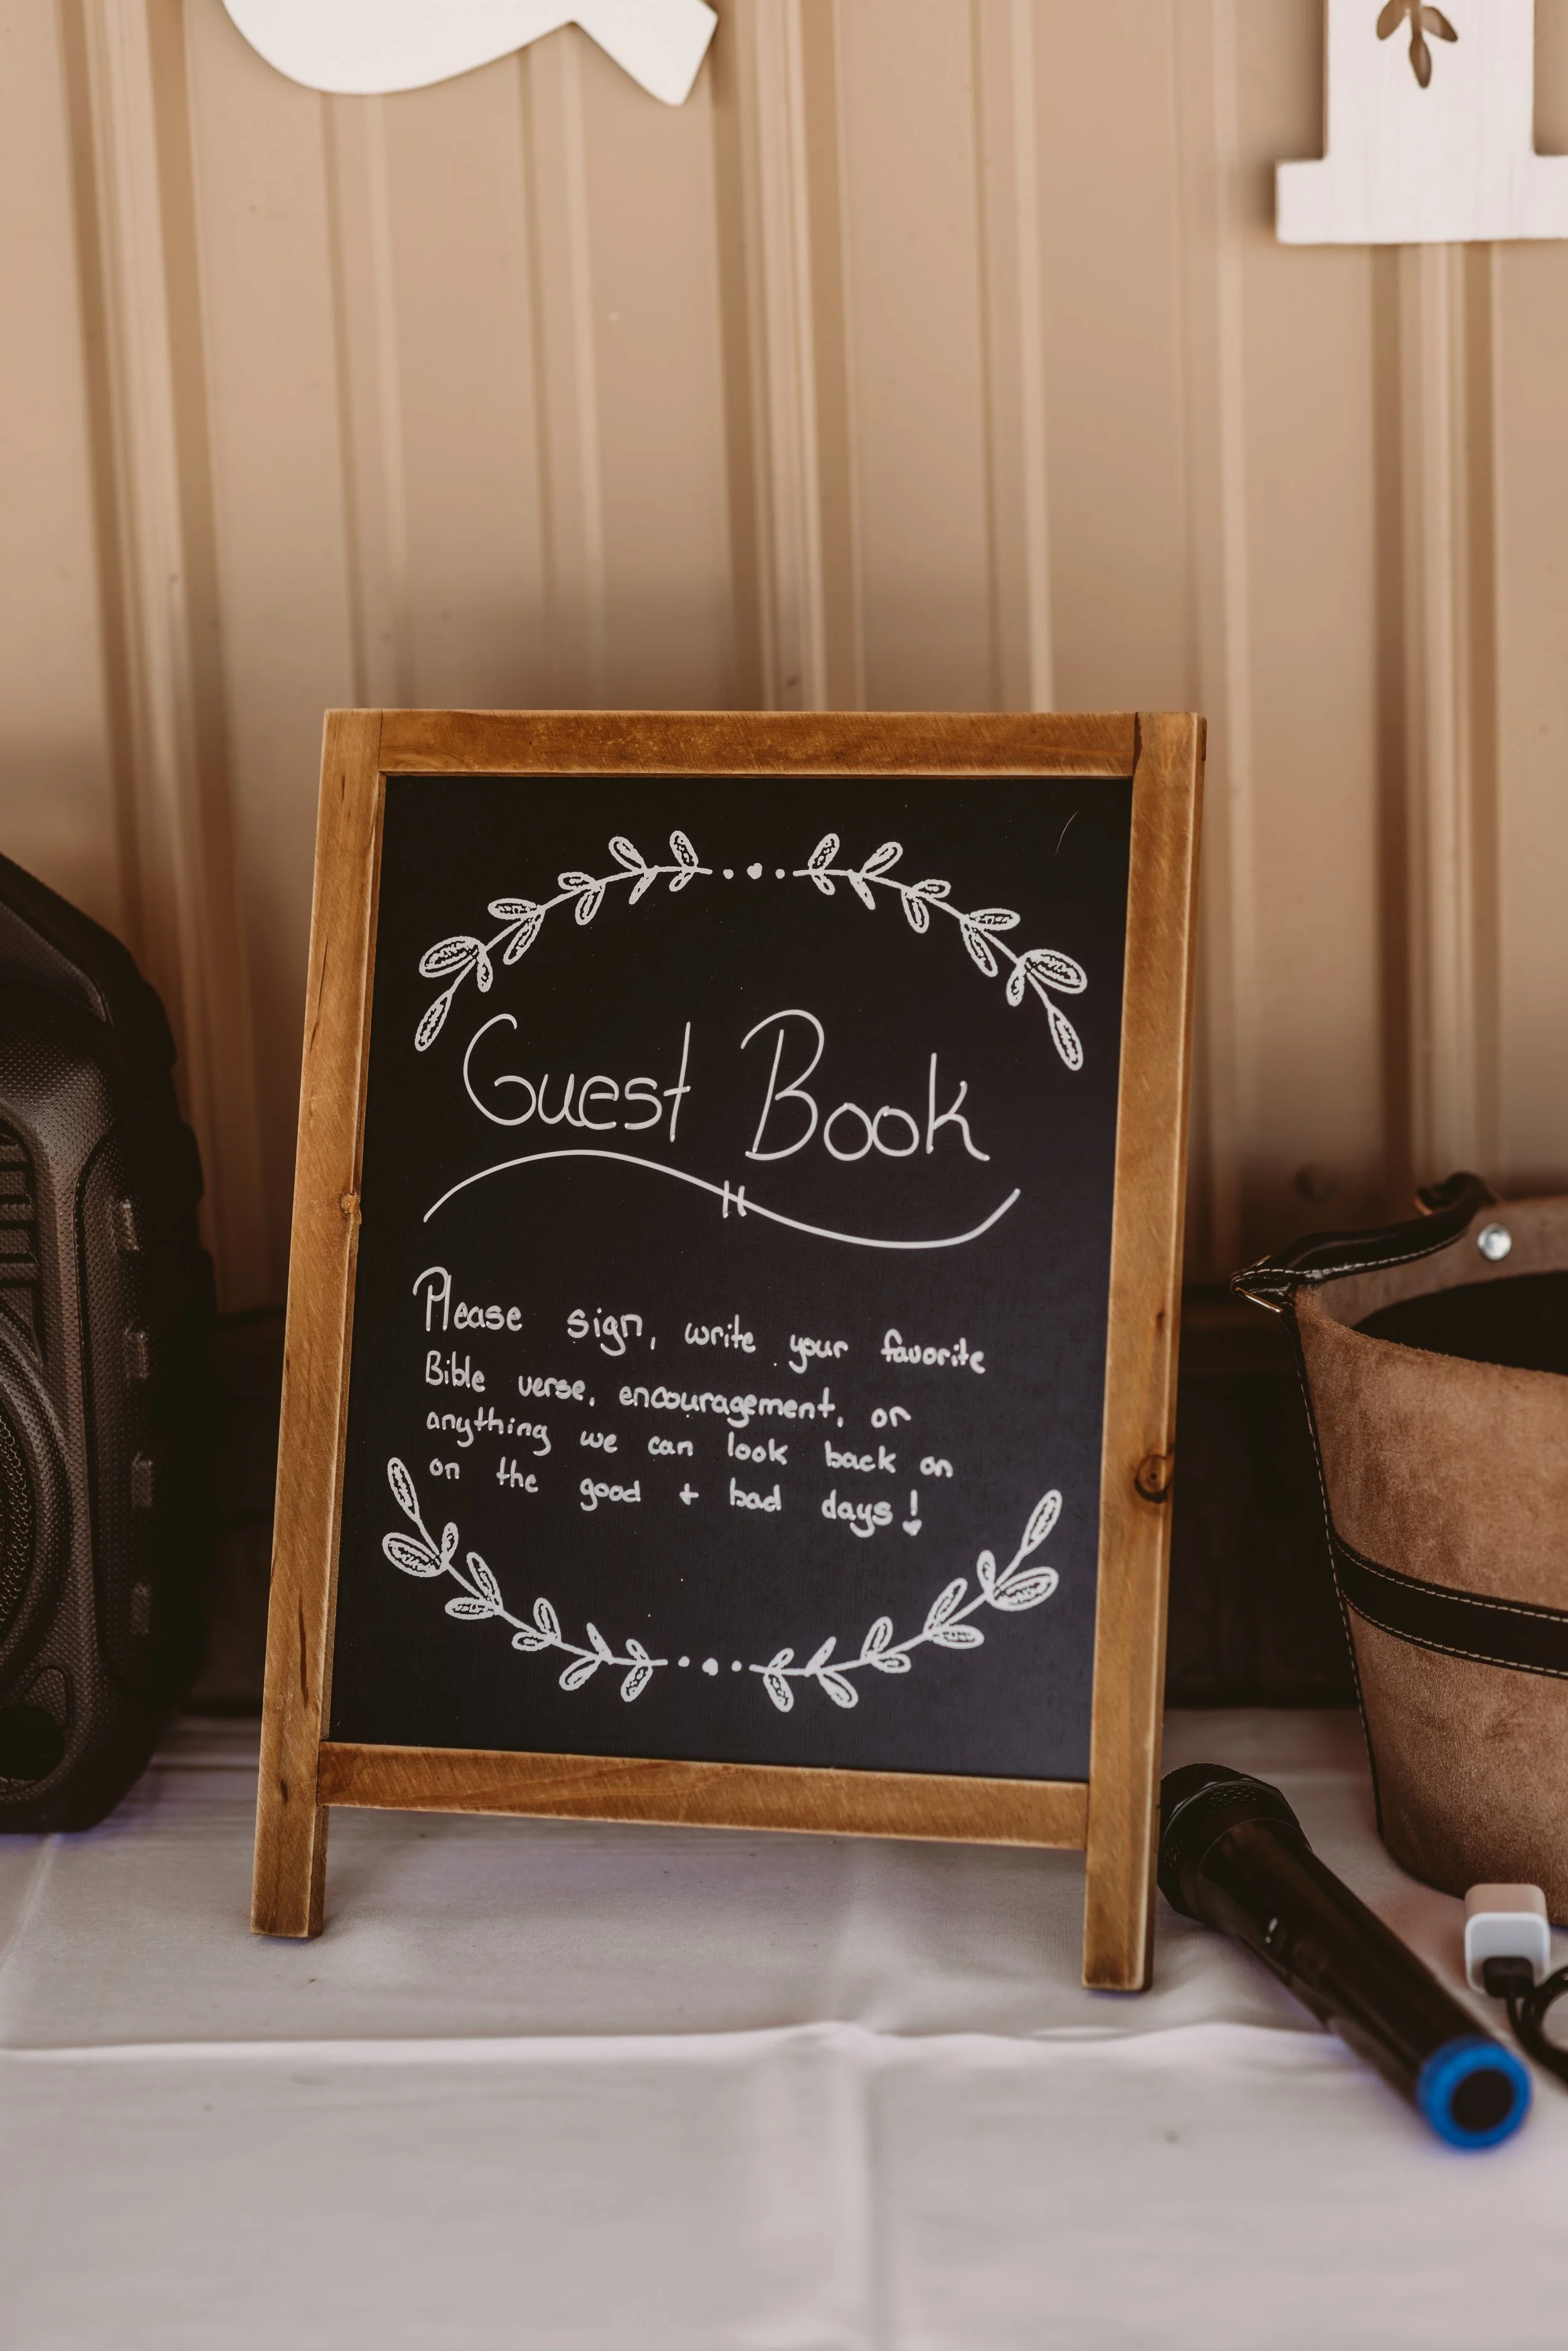 Guest Book
Please sign, write your favorite
Bible verse, encouragement, or
anything we can look back on
on the good + bad days!